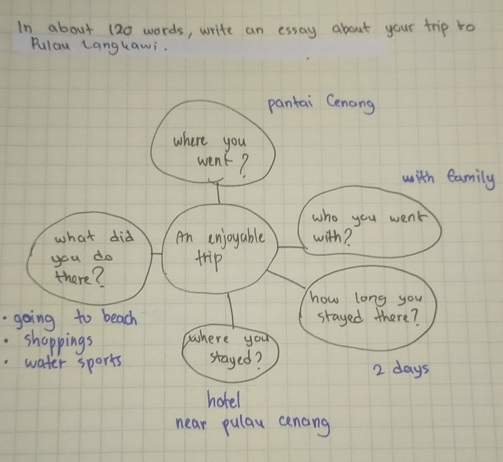 In about 120 words, write an essay about your trip to
Pulau Langkawi.
pantai Cenang
where you
went?
with family
who you went
with?
what did
you do
there?
An enjoyable
trip
how long you
stayed there?
• going to beach
• shoppings
• water sports
where you
stayed?
2 days
hotel
near pulau cenang